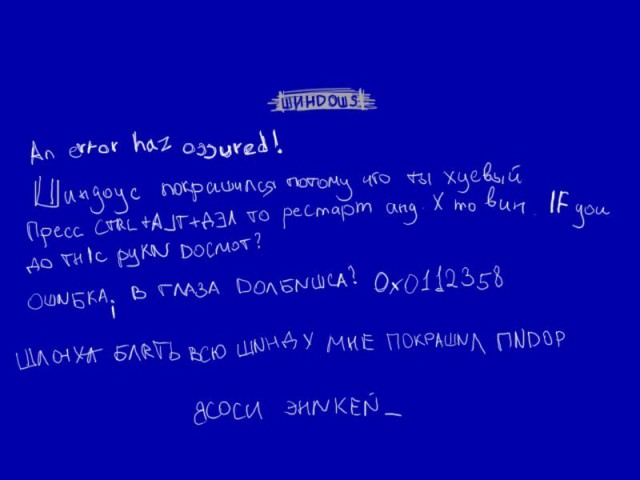 ШИНDOШS
An error haz occured!
Шиндоус покрашился потому что ты хуевый
Пресс CTRL+ALT+ДЭЛ то рестарт анд X то вин. IF you
до тніс руки DOСМОТ?
ОШИБКА; В ГЛАЗА DОЛБИШСА? 0x0112358
ШЛЮХА БЛЯТЬ ВСЮ ШИНДУ МНЕ ПОКРАШИЛ ПИDОР
ЯСОСИ ЭНИКЕЙ_